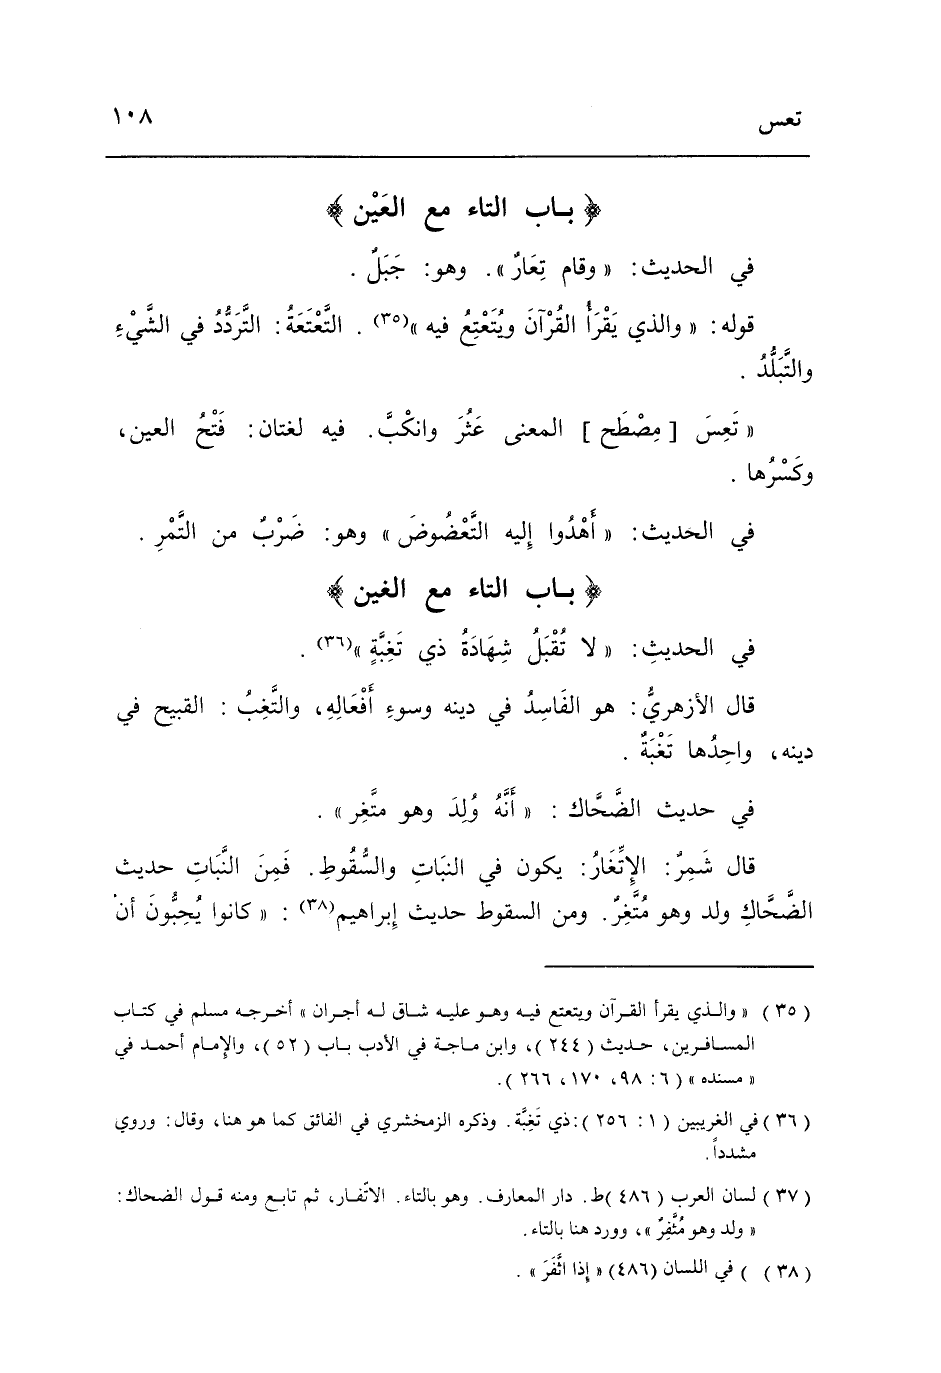 تعس ١٠٨
﴿ بـاب التاء مع العَيْن ﴾
في الحديث: « وقام تِعَارٌ ». وهو: جَبَلٌ .
قوله: « والذي يَقْرَأُ القُرْآنَ ويُتَعْتِعُ فيه »(٣٥) . التَّعْتَعَةُ: التَّرَدُّدُ في الشَّيْءِ
والتَّبَلُّدُ .
« تَعِسَ [ مِصْطَح ] المعنى عَثُرَ وانكْبَّ. فيه لغتان: فَتْحُ العين،
وكَسْرُها .
في الحديث: « أَهْدُوا إليه التَّعْضُوضَ » وهو: ضَرْبٌ من التَّمْرِ .
﴿ بـاب التاء مع الغين ﴾
في الحديثِ: « لا تُقْبَلُ شِهَادَةُ ذي تَغِبَّةٍ »(٣٦) .
قال الأزهريُّ: هو الفَاسِدُ في دينه وسوءِ أَفْعَالِهِ، والتَّغِبُ : القبيح في
دينه، واحِدُها تَغْبَةٌ .
في حديث الضَّحَّاك : « أَنَّهُ وُلِدَ وهو متَّغِر » .
قال شَمِرٌ: الإتِّغَارُ: يكون في النبَاتِ والسُّقُوطِ. فَمِنَ النَّبَاتِ حديث
الضَّحَّاكِ ولد وهو مُتَّغِرٌ. ومن السقوط حديث إبراهيم(٣٨) : « كانوا يُحِبُّونَ أنْ
( ٣٥ ) « والـذي يقرأ القـرآن ويتتعتع فيـه وهـو عليـه شـاق لـه أجـران » أخـرجـه مسلم في كتـاب
المسافـرين، حـديث ( ٢٤٤ )، وابن مـاجـة في الأدب بـاب ( ٥٢ )، والإمـام أحمـد في
« مسنده » ( ٦: ٩٨، ١٧٠، ٢٦٦ ).
( ٣٦ ) في الغريبين ( ١: ٢٥٦ ):ذي تَغِبَّة. وذكره الزمخشري في الفائق كما هو هنا، وقال: وروي
مشدداً.
( ٣٧ ) لسان العرب ( ٤٨٦ )ط. دار المعارف. وهو بالتاء. الاتّفـار، ثم تابـع ومنه قـول الضحاك:
« ولد وهو مُثَّفِرٌ »، وورد هنا بالتاء.
( ٣٨ ) ) في اللسان (٤٨٦) « إذا اثَّفَرَ » .